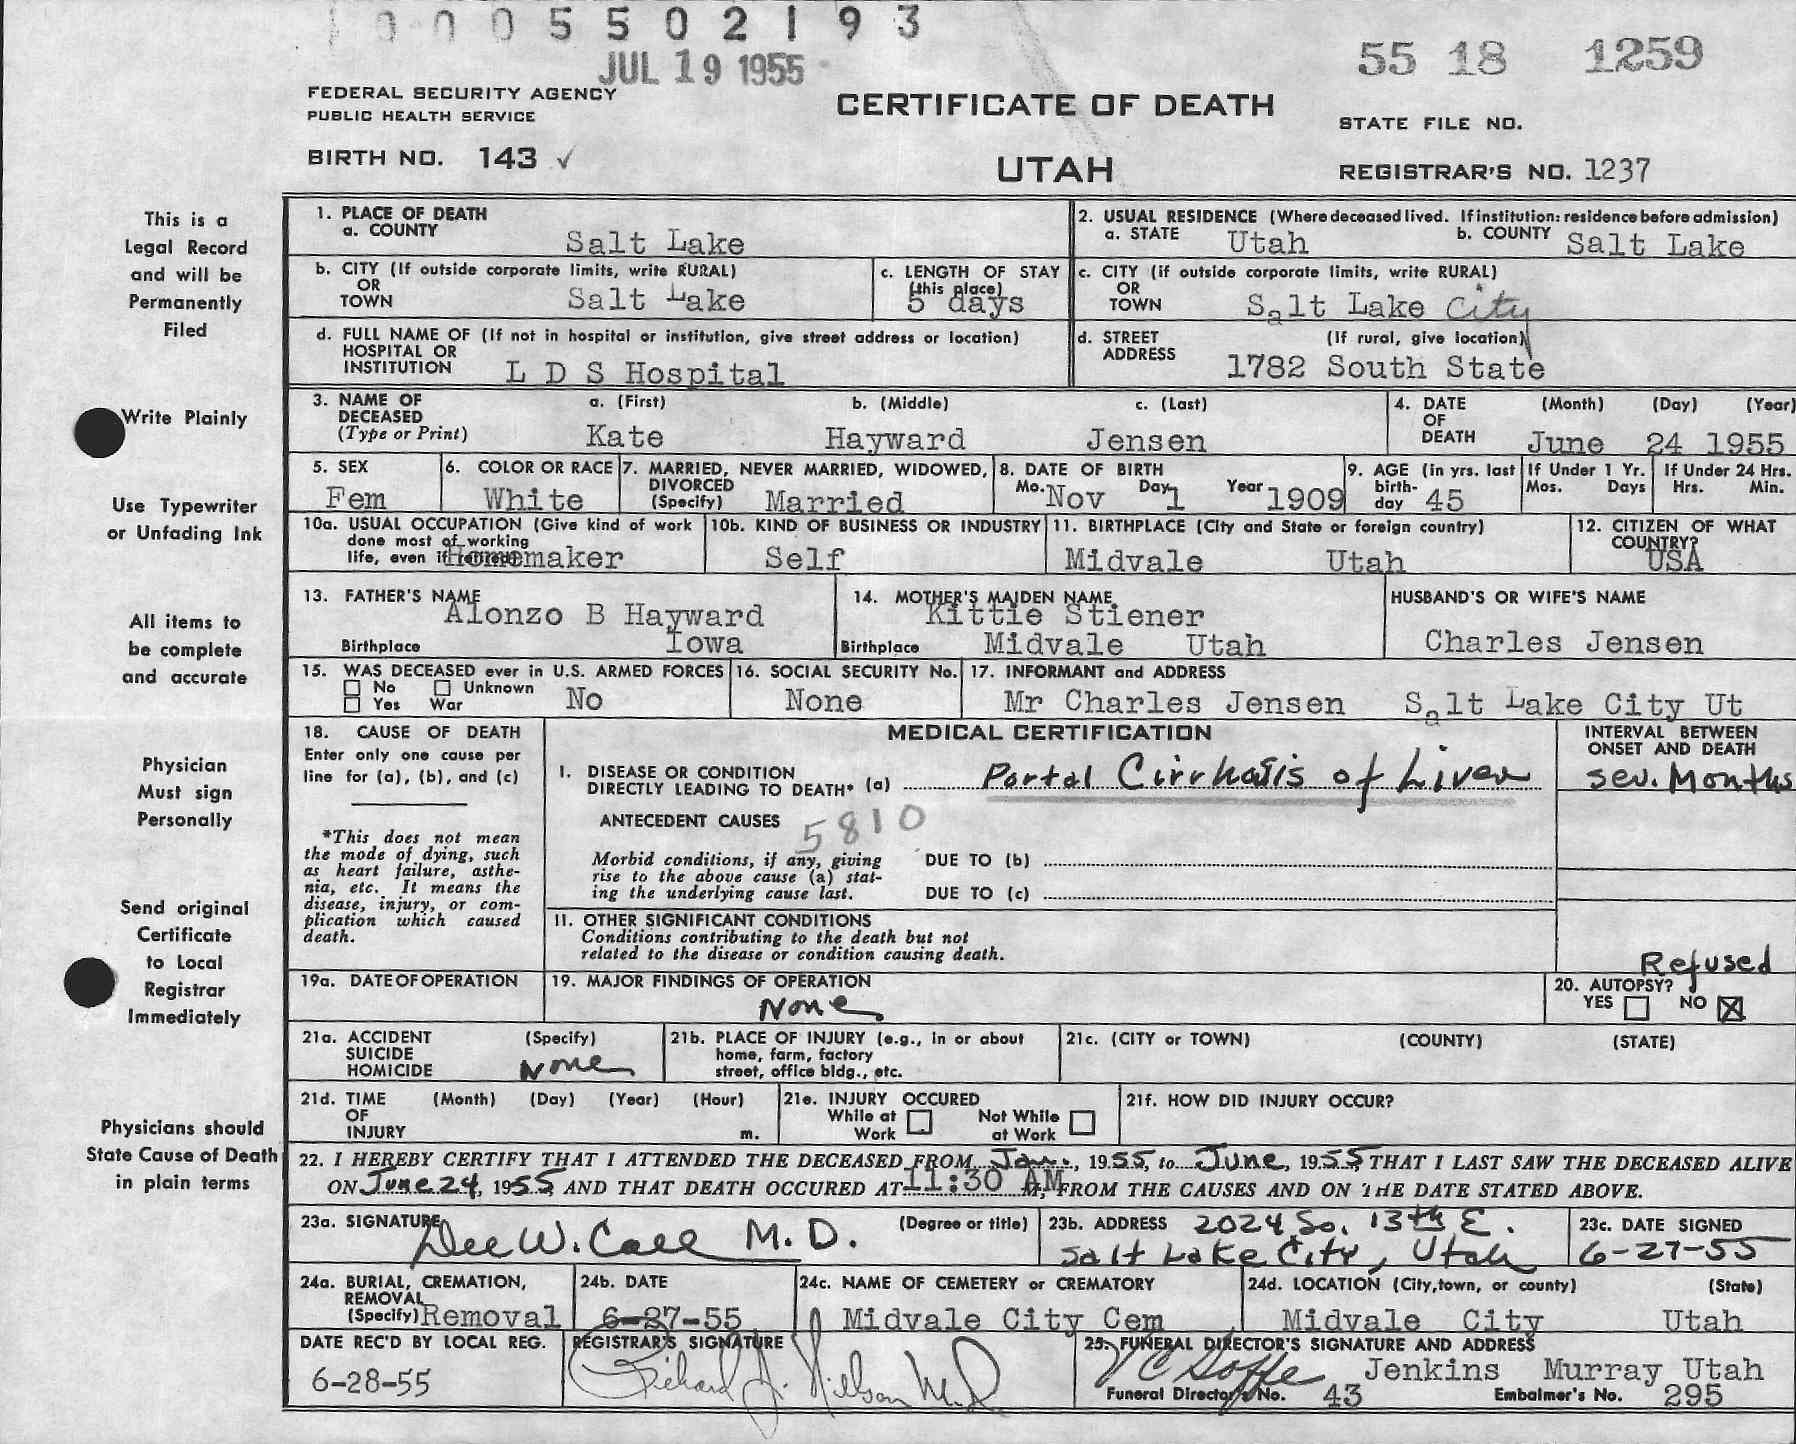 0005502193
JUL 19 1955
55 18 1259
FEDERAL SECURITY AGENCY
PUBLIC HEALTH SERVICE
CERTIFICATE OF DEATH
STATE FILE NO.
BIRTH NO. 143 ✓
UTAH
REGISTRAR'S NO. 1237
This is a
Legal Record
and will be
Permanently
Filed
Write Plainly
Use Typewriter
or Unfading Ink
All items to
be complete
and accurate
Physician
Must sign
Personally
Send original
Certificate
to Local
Registrar
Immediately
Physicians should
State Cause of Death
in plain terms
1. PLACE OF DEATH
a. COUNTY Salt Lake
2. USUAL RESIDENCE (Where deceased lived. If institution: residence before admission)
a. STATE Utah b. COUNTY Salt Lake
b. CITY (If outside corporate limits, write RURAL)
OR
TOWN Salt Lake
c. LENGTH OF STAY
(this place)
5 days
c. CITY (if outside corporate limits, write RURAL)
OR
TOWN Salt Lake City
d. FULL NAME OF (If not in hospital or institution, give street address or location)
HOSPITAL OR
INSTITUTION L D S Hospital
d. STREET (If rural, give location)
ADDRESS 1782 South State
3. NAME OF DECEASED (Type or Print)
a. (First) b. (Middle) c. (Last)
Kate Hayward Jensen
4. DATE OF DEATH (Month) (Day) (Year)
June 24 1955
5. SEX
Fem
6. COLOR OR RACE
White
7. MARRIED, NEVER MARRIED, WIDOWED,
DIVORCED
(Specify) Married
8. DATE OF BIRTH
Mo. Nov Day 1 Year 1909
9. AGE (in yrs. last
birth-
day 45
If Under 1 Yr.
Mos. Days
If Under 24 Hrs.
Hrs. Min.
10a. USUAL OCCUPATION (Give kind of work
done most of working
life, even if retired) Homemaker
10b. KIND OF BUSINESS OR INDUSTRY
Self
11. BIRTHPLACE (City and State or foreign country)
Midvale Utah
12. CITIZEN OF WHAT
COUNTRY?
USA
13. FATHER'S NAME
Alonzo B Hayward
Birthplace Iowa
14. MOTHER'S MAIDEN NAME
Kittie Stiener
Birthplace Midvale Utah
HUSBAND'S OR WIFE'S NAME
Charles Jensen
15. WAS DECEASED ever in U.S. ARMED FORCES
No Unknown
Yes War No
16. SOCIAL SECURITY No.
None
17. INFORMANT and ADDRESS
Mr Charles Jensen Salt Lake City Ut
18. CAUSE OF DEATH
Enter only one cause per
line for (a), (b), and (c)
*This does not mean
the mode of dying, such
as heart failure, asthe-
nia, etc. It means the
disease, injury, or com-
plication which caused
death.
MEDICAL CERTIFICATION
INTERVAL BETWEEN
ONSET AND DEATH
I. DISEASE OR CONDITION
DIRECTLY LEADING TO DEATH* (a) Portal Cirrhosis of Liver
sev. Months
ANTECEDENT CAUSES
5810
Morbid conditions, if any, giving
rise to the above cause (a) stat-
ing the underlying cause last.
DUE TO (b)
DUE TO (c)
II. OTHER SIGNIFICANT CONDITIONS
Conditions contributing to the death but not
related to the disease or condition causing death.
Refused
19a. DATE OF OPERATION
19. MAJOR FINDINGS OF OPERATION
None
20. AUTOPSY?
YES NO X
21a. ACCIDENT (Specify)
SUICIDE
HOMICIDE None
21b. PLACE OF INJURY (e.g., in or about
home, farm, factory
street, office bldg., etc.
21c. (CITY or TOWN) (COUNTY) (STATE)
21d. TIME (Month) (Day) (Year) (Hour)
OF
INJURY m.
21e. INJURY OCCURED
While at Work Not While at Work
21f. HOW DID INJURY OCCUR?
22. I HEREBY CERTIFY THAT I ATTENDED THE DECEASED FROM Jan., 1955, to June, 1955 THAT I LAST SAW THE DECEASED ALIVE
ON June 24, 1955 AND THAT DEATH OCCURED AT 11:30 AM M, FROM THE CAUSES AND ON THE DATE STATED ABOVE.
23a. SIGNATURE (Degree or title)
Dee W. Call M.D.
23b. ADDRESS 2024 So. 13th E.
Salt Lake City, Utah
23c. DATE SIGNED
6-27-55
24a. BURIAL, CREMATION,
REMOVAL
(Specify) Removal
24b. DATE
6-27-55
24c. NAME OF CEMETERY or CREMATORY
Midvale City Cem
24d. LOCATION (City, town, or county) (State)
Midvale City Utah
DATE REC'D BY LOCAL REG.
6-28-55
REGISTRAR'S SIGNATURE
Richard J. Nilson M.D.
25. FUNERAL DIRECTOR'S SIGNATURE AND ADDRESS
Jenkins Murray Utah
Funeral Director's No. 43 Embalmer's No. 295